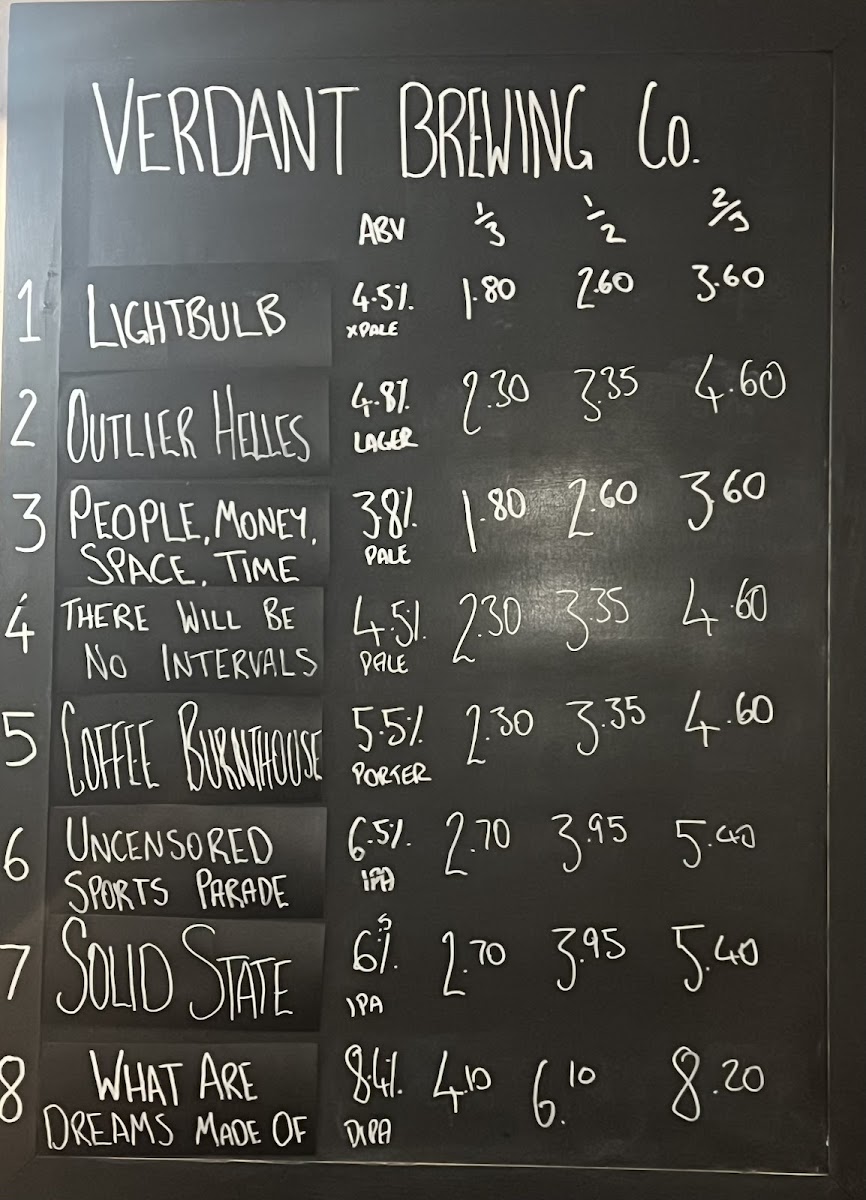 VERDANT BREWING Co.
ABV 1/3 1/2 2/3
1 LIGHTBULB 4.5% XPALE 1.80 2.60 3.60
2 OUTLIER HELLES 4.8% LAGER 2.30 3.35 4.60
3 PEOPLE, MONEY, 3.8% 1.80 2.60 3.60
SPACE, TIME PALE
4 THERE WILL BE 4.5% 2.30 3.35 4.60
NO INTERVALS PALE
5 COFFEE BURNTHOUSE 5.5% PORTER 2.30 3.35 4.60
6 UNCENSORED 6.5% 2.70 3.95 5.40
SPORTS PARADE IPA
7 SOLID STATE 6.5% IPA 2.70 3.95 5.40
8 WHAT ARE 8.4% 4.10 6.10 8.20
DREAMS MADE OF DIPA